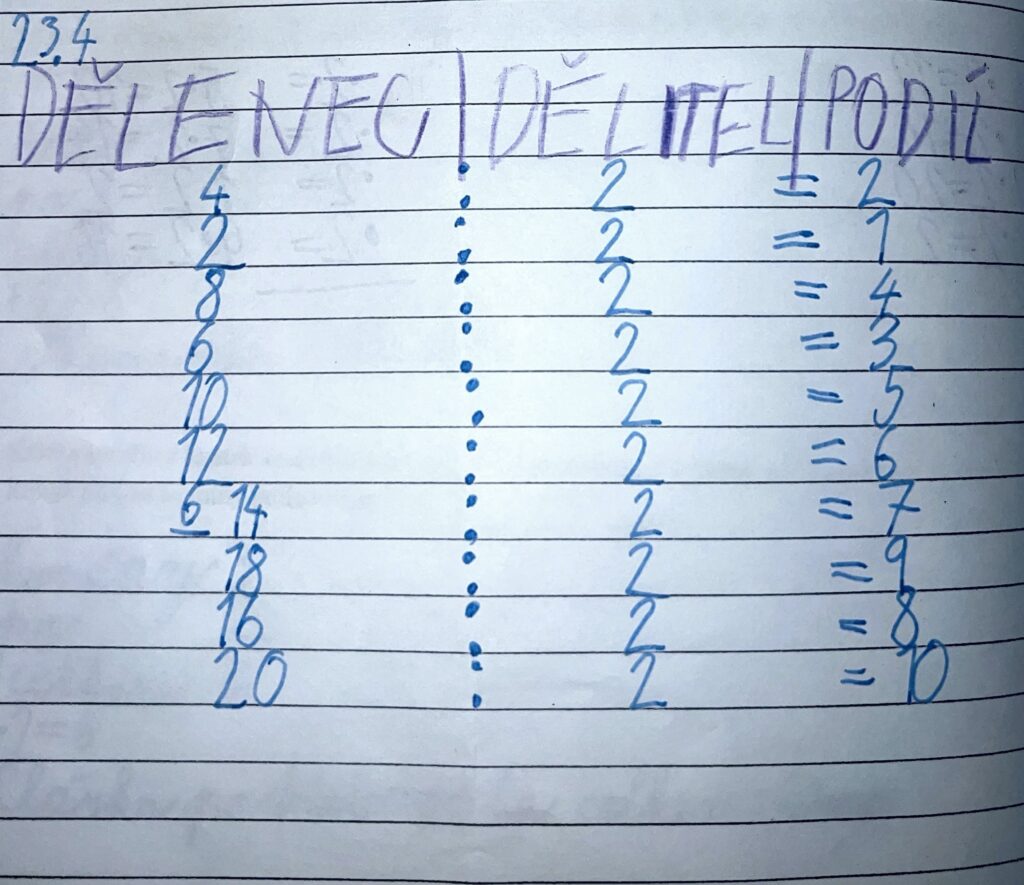 23.4
DĚLENEC | DĚLITEL | PODÍL
4 : 2 = 2
2 : 2 = 1
8 : 2 = 4
6 : 2 = 3
10 : 2 = 5
12 : 2 = 6
6 14 : 2 = 7
18 : 2 = 9
16 : 2 = 8
20 : 2 = 10